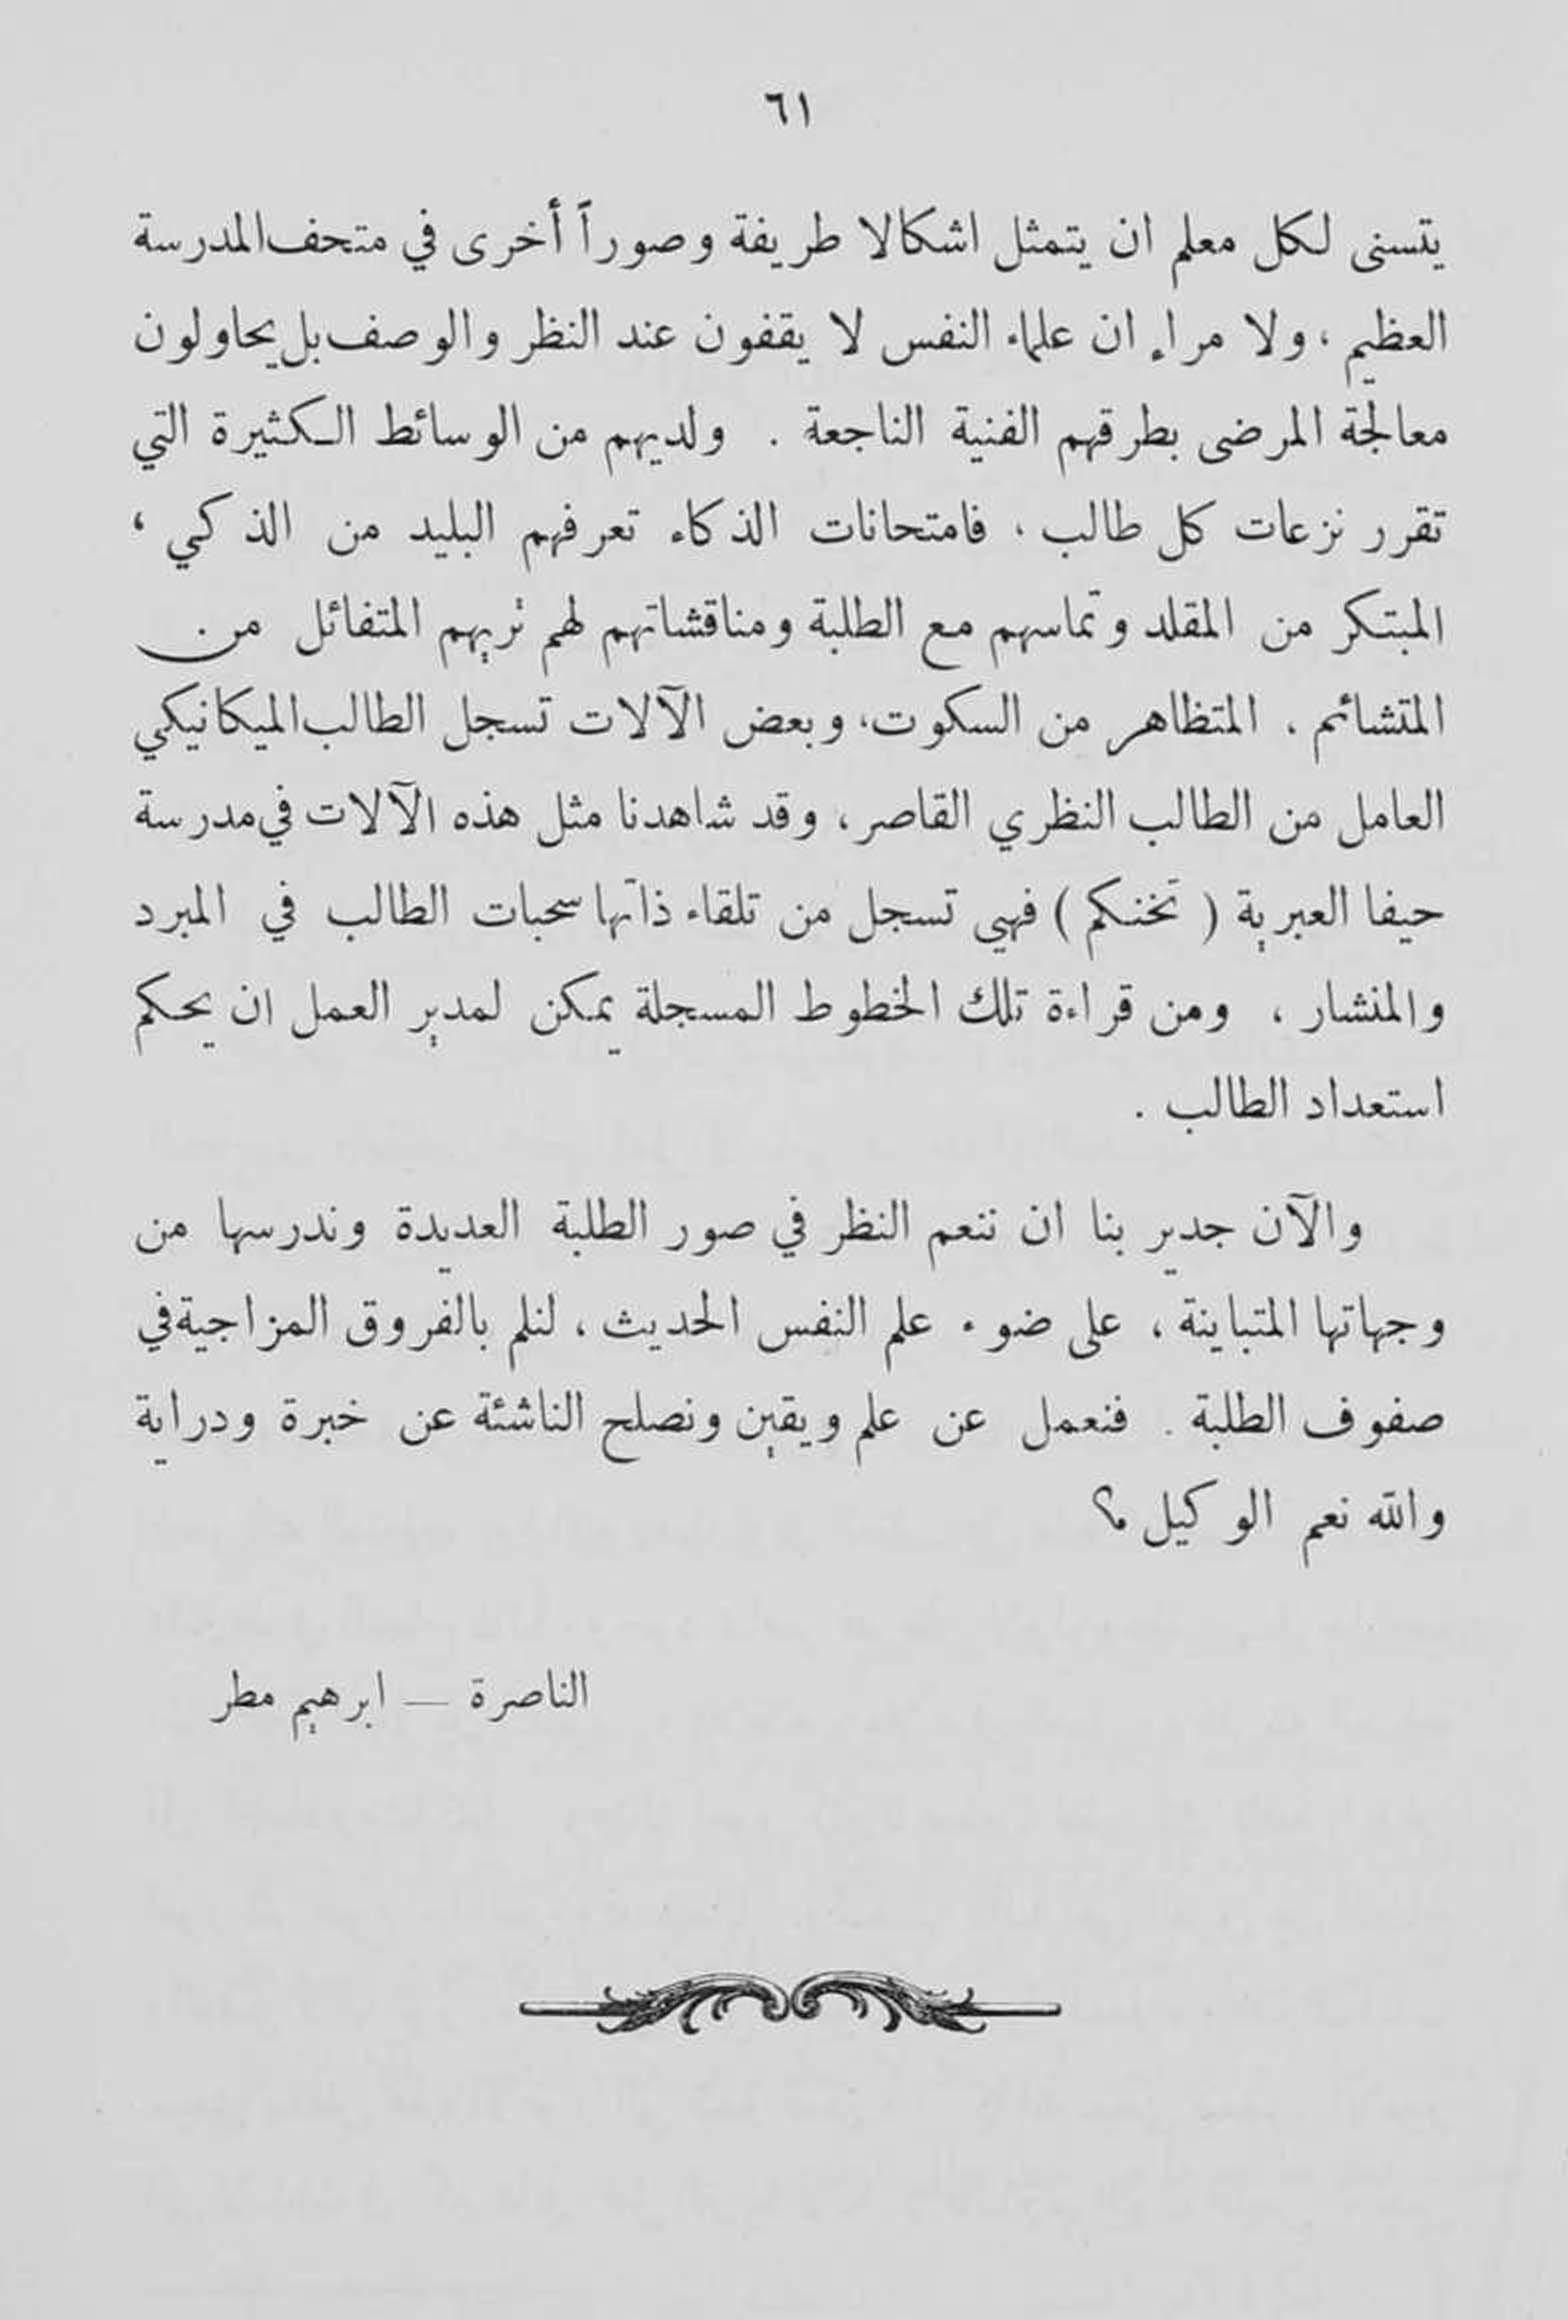 ٦١
يتسنى لكل معلم ان يتمثل اشكالا طريفة وصوراً أخرى في متحف المدرسة
العظيم ، ولا مراء ان علماء النفس لا يقفون عند النظر والوصف بل يحاولون
معالجة المرضى بطرقهم الفنية الناجعة . ولديهم من الوسائط الكثيرة التي
تقرر نزعات كل طالب ، فامتحانات الذكاء تعرفهم البليد من الذكي ،
المبتكر من المقلد وتماسهم مع الطلبة ومناقشاتهم لهم تريهم المتفائل من
المتشائم ، المتظاهر من السكوت، وبعض الآلات تسجل الطالب الميكانيكي
العامل من الطالب النظري القاصر ، وقد شاهدنا مثل هذه الآلات في مدرسة
حيفا العبرية ( تخنكم ) فهي تسجل من تلقاء ذاتها سحبات الطالب في المبرد
والمنشار ، ومن قراءة تلك الخطوط المسجلة يمكن لمدير العمل ان يحكم
استعداد الطالب .
والآن جدير بنا ان ننعم النظر في صور الطلبة العديدة وندرسها من
وجهاتها المتباينة ، على ضوء علم النفس الحديث ، لنلم بالفروق المزاجية في
صفوف الطلبة . فنعمل عن علم ويقين ونصلح الناشئة عن خبرة ودراية
والله نعم الوكيل ؟
الناصرة — ابرهيم مطر